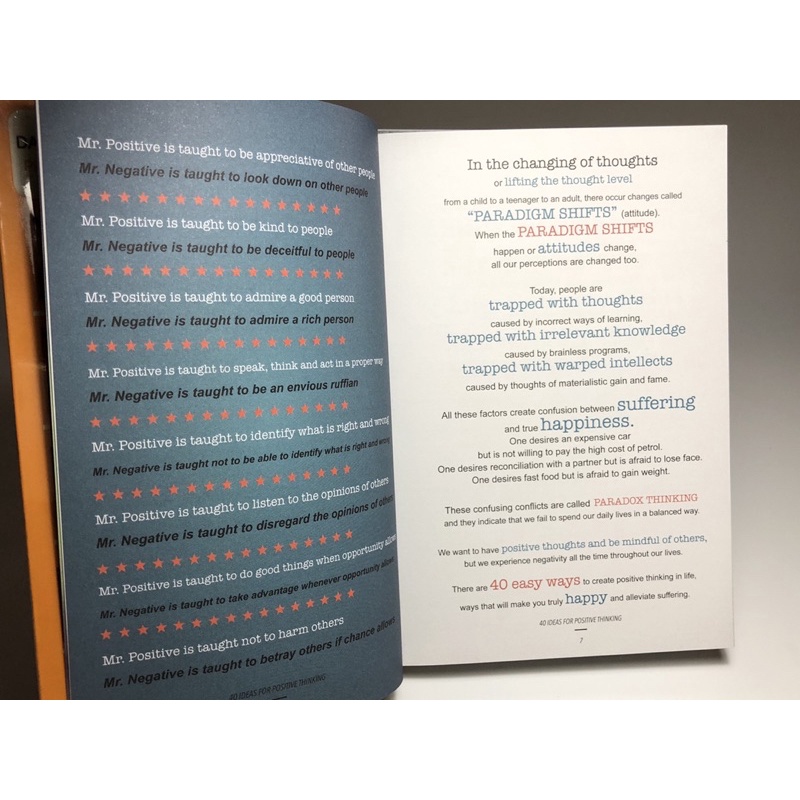 Mr. Positive is taught to be appreciative of other people
Mr. Negative is taught to look down on other people
Mr. Positive is taught to be kind to people
Mr. Negative is taught to be deceitful to people
Mr. Positive is taught to admire a good person
Mr. Negative is taught to admire a rich person
Mr. Positive is taught to speak, think and act in a proper way
Mr. Negative is taught to be an envious ruffian
Mr. Positive is taught to identify what is right and wrong
Mr. Negative is taught not to be able to identify what is right and wrong
Mr. Positive is taught to listen to the opinions of others
Mr. Negative is taught to disregard the opinions of others
Mr. Positive is taught to do good things when opportunity allows
Mr. Negative is taught to take advantage whenever opportunity allows
Mr. Positive is taught not to harm others
Mr. Negative is taught to betray others if chance allows
40 IDEAS FOR POSITIVE THINKING
In the changing of thoughts
or lifting the thought level
from a child to a teenager to an adult, there occur changes called
“PARADIGM SHIFTS” (attitude).
When the PARADIGM SHIFTS
happen or attitudes change,
all our perceptions are changed too.
Today, people are
trapped with thoughts
caused by incorrect ways of learning,
trapped with irrelevant knowledge
caused by brainless programs,
trapped with warped intellects
caused by thoughts of materialistic gain and fame.
All these factors create confusion between suffering
and true happiness.
One desires an expensive car
but is not willing to pay the high cost of petrol.
One desires reconciliation with a partner but is afraid to lose face.
One desires fast food but is afraid to gain weight.
These confusing conflicts are called PARADOX THINKING
and they indicate that we fail to spend our daily lives in a balanced way.
We want to have positive thoughts and be mindful of others,
but we experience negativity all the time throughout our lives.
There are 40 easy ways to create positive thinking in life,
ways that will make you truly happy and alleviate suffering.
40 IDEAS FOR POSITIVE THINKING
7